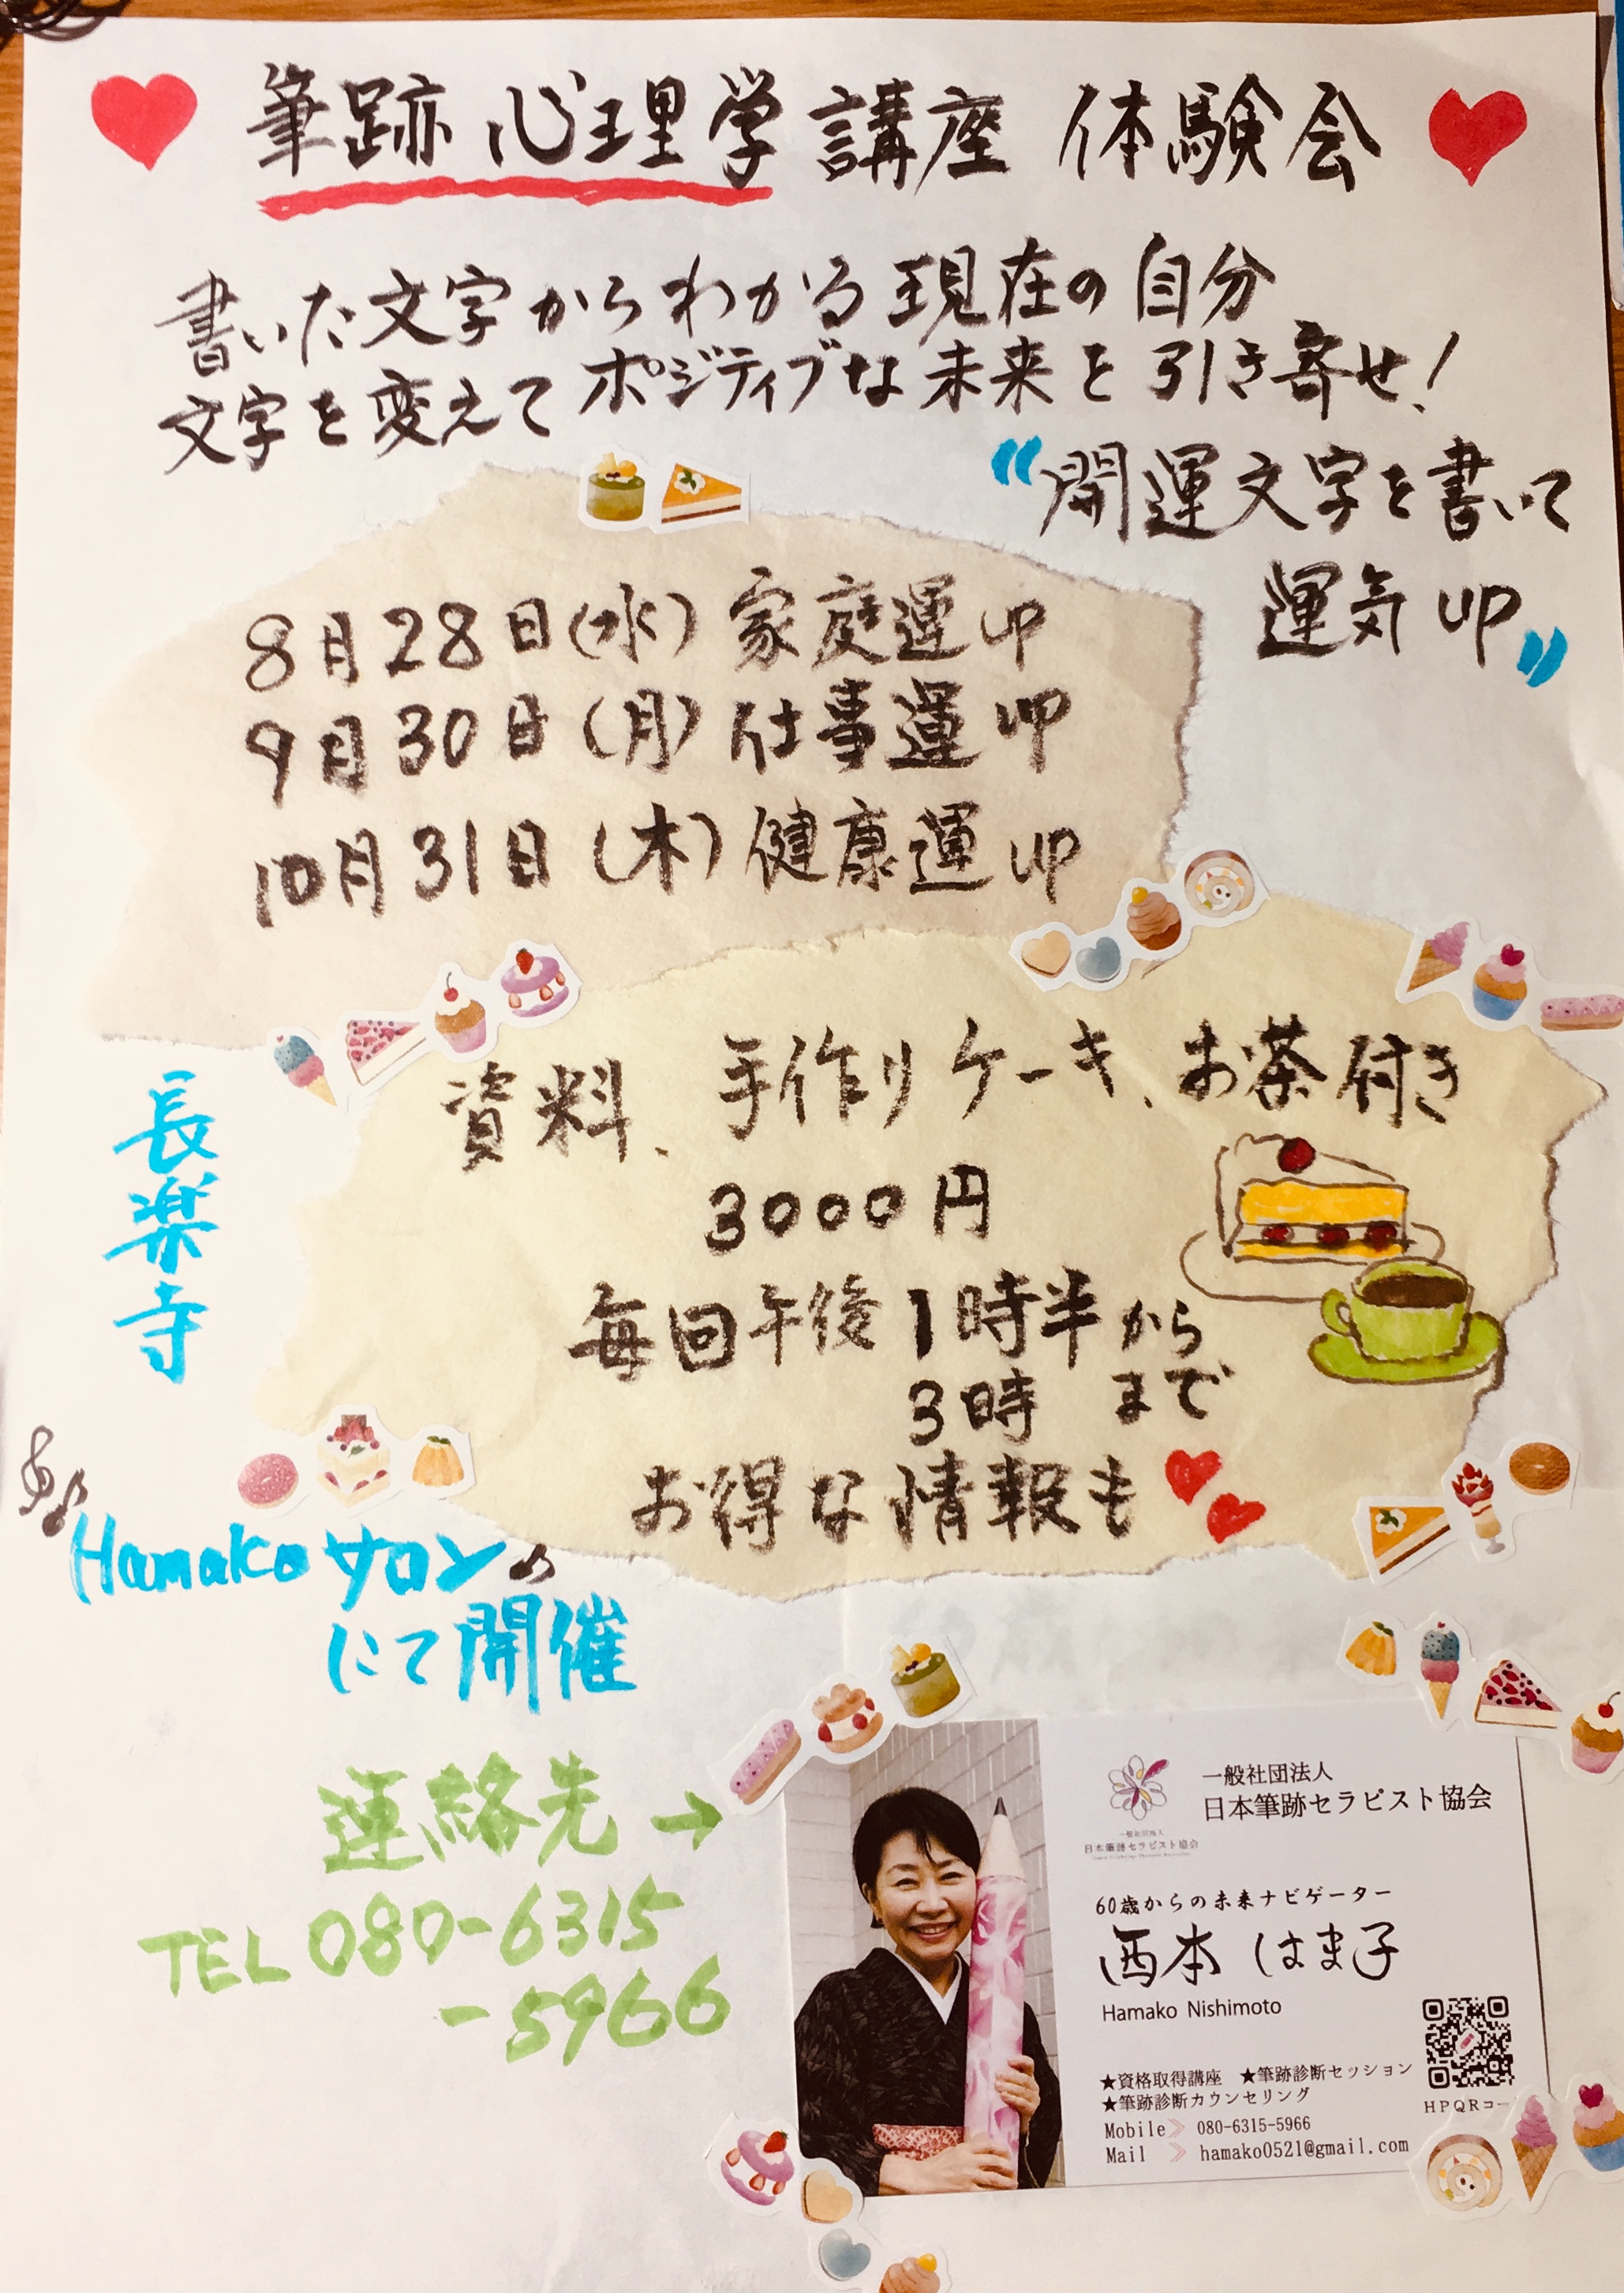 筆跡心理学講座 体験会
書いた文字からわかる現在の自分
文字を変えてポジティブな未来を引き寄せ!
“開運文字を書いて
運気up”
8月28日(水) 家庭運up
9月30日(月) 仕事運up
10月31日(木) 健康運up
資料、手作りケーキ、お茶付き
3000円
毎回午後1時半から
3時まで
お得な情報も
長楽寺
Hamakoサロン
にて開催
連絡先→
TEL 080-6315
-5966
一般社団法人
日本筆跡セラピスト協会
一般社団法人
日本筆跡セラピスト協会
60歳からの未来ナビゲーター
西本 はま子
Hamako Nishimoto
★資格取得講座 ★筆跡診断セッション
★筆跡診断カウンセリング
Mobile 080-6315-5966
Mail hamako0521@gmail.com
HPQRコー